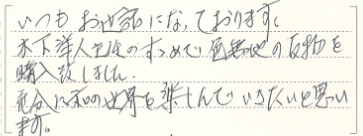 いつもお世話になっております。
木下洋人先生のすすめで色無地の反物を
購入致しました。
充分に和の世界を楽しんでいきたいと思い
ます。